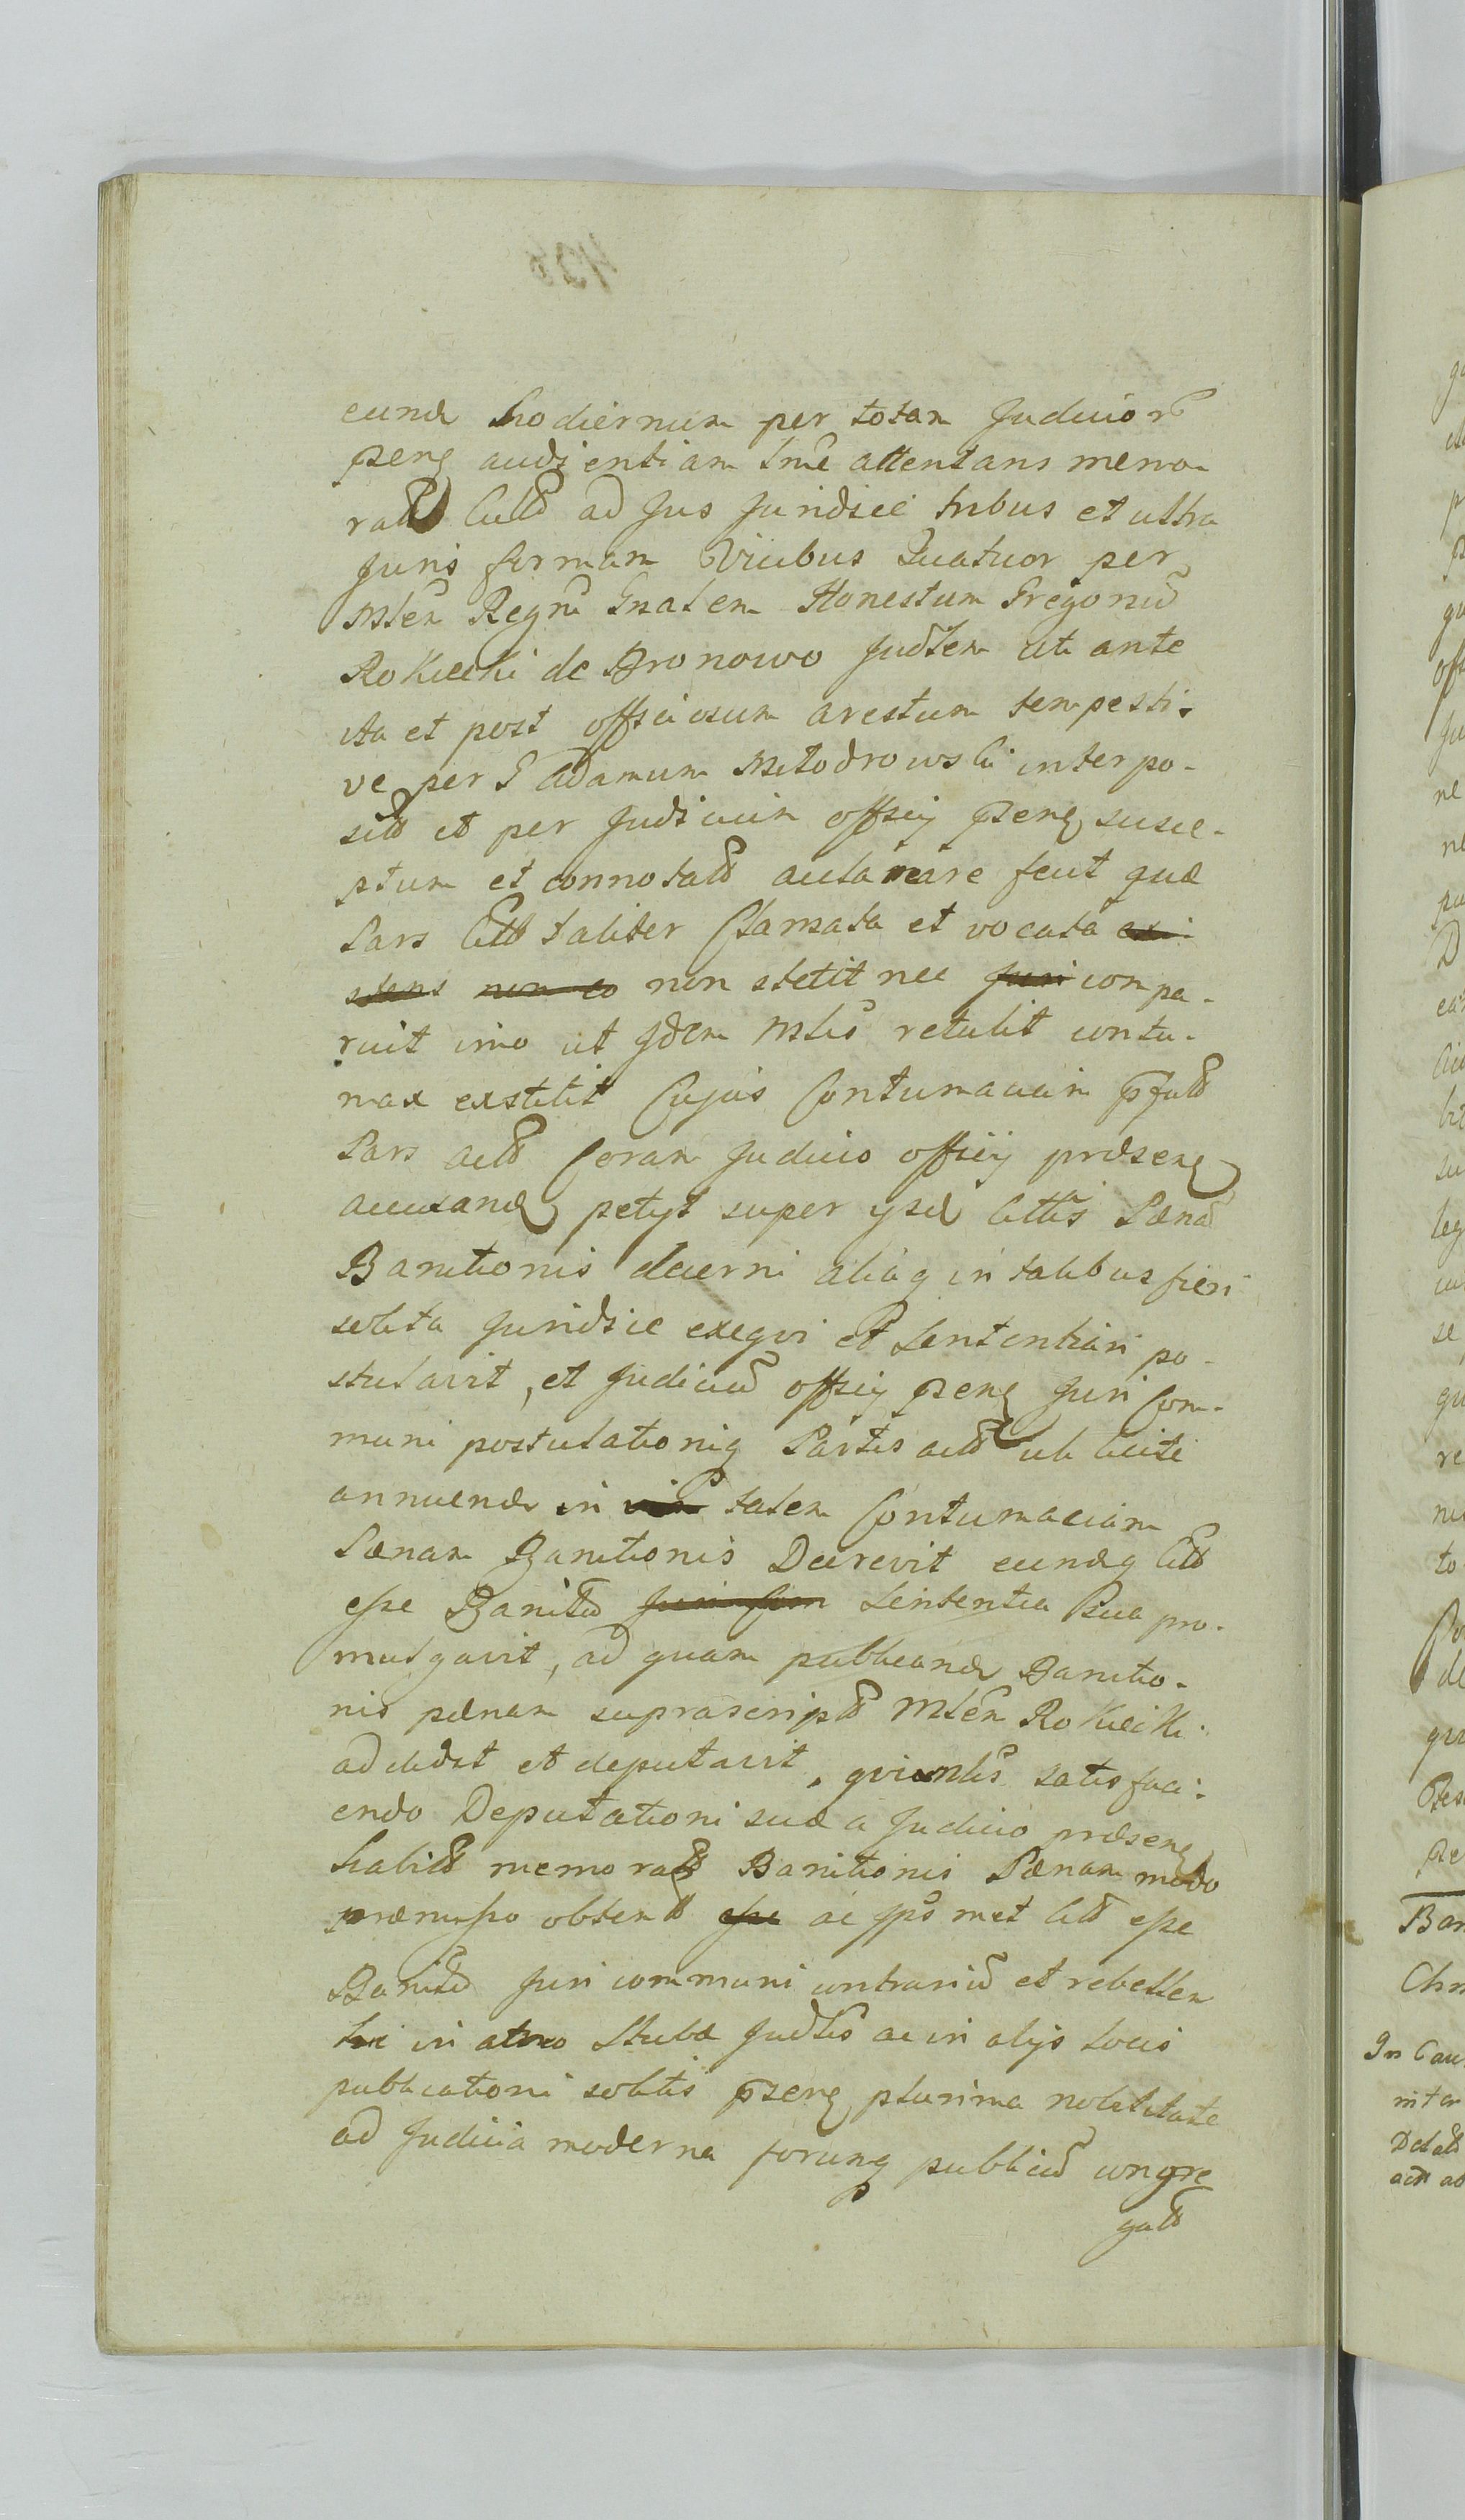 eund hodiernum per totam Judicior̃
pseng audientiam tm̃e attentans memo-
ratũ Cittũ ad Jus Juridice tribus et ultra
Juris formam Vicibus Quatuor per
Mlem Regni Gnalem Honestum Gregoriũ
Rokicki de Bronowo Judtem uti ante
ita et post officiosum arestum tempesti-
ve per G Adamum Młodrowski interpo-
sitũ et per Judicium officij pseng susce-
ptum et connotatũ acclamare fecit quæ
Pars Cittã taliter Clamata et vocata
non stetit nec compa-
ruit imo ut Idem Mlis retulit contu-
max exstitit Cujus Contumaciam pfatã
Pars actã Coram Judicio officij præseng
accusand petijt super ipsd Cittis Pænã
Banitionis decerni aliaq in talibus fieri
solita Juridice exeqvi et Sententiari po-
stulavit, et Judiciũ officij pseng Juri Com-
muni postulationiq Partis actã uti licite
annuend in talem Contumaciam
Pænam Banitionis Decrevit eundq Cittũ
esse Banitũ Sententia Sua pro-
mulgavit, ad quam publicand Banitio-
nis pænam suprascriptũ Mlem Rokicki
addidit et deputavit, qvi Mlis satisfaci-
endo Deputationi suæ a Judicio præseng
habitã memoratã Banitionis Pænam modo
præmisso obtentã ac ipsũmet Cittũ esse
Banitũ Juri communi contrariũ et rebellem
hic in atrio Stubæ Judlis ac in alijs locis
publicationi solitis pseng plurima nobilitate
ad Judicia moderna forumq publicũ congre
gatã